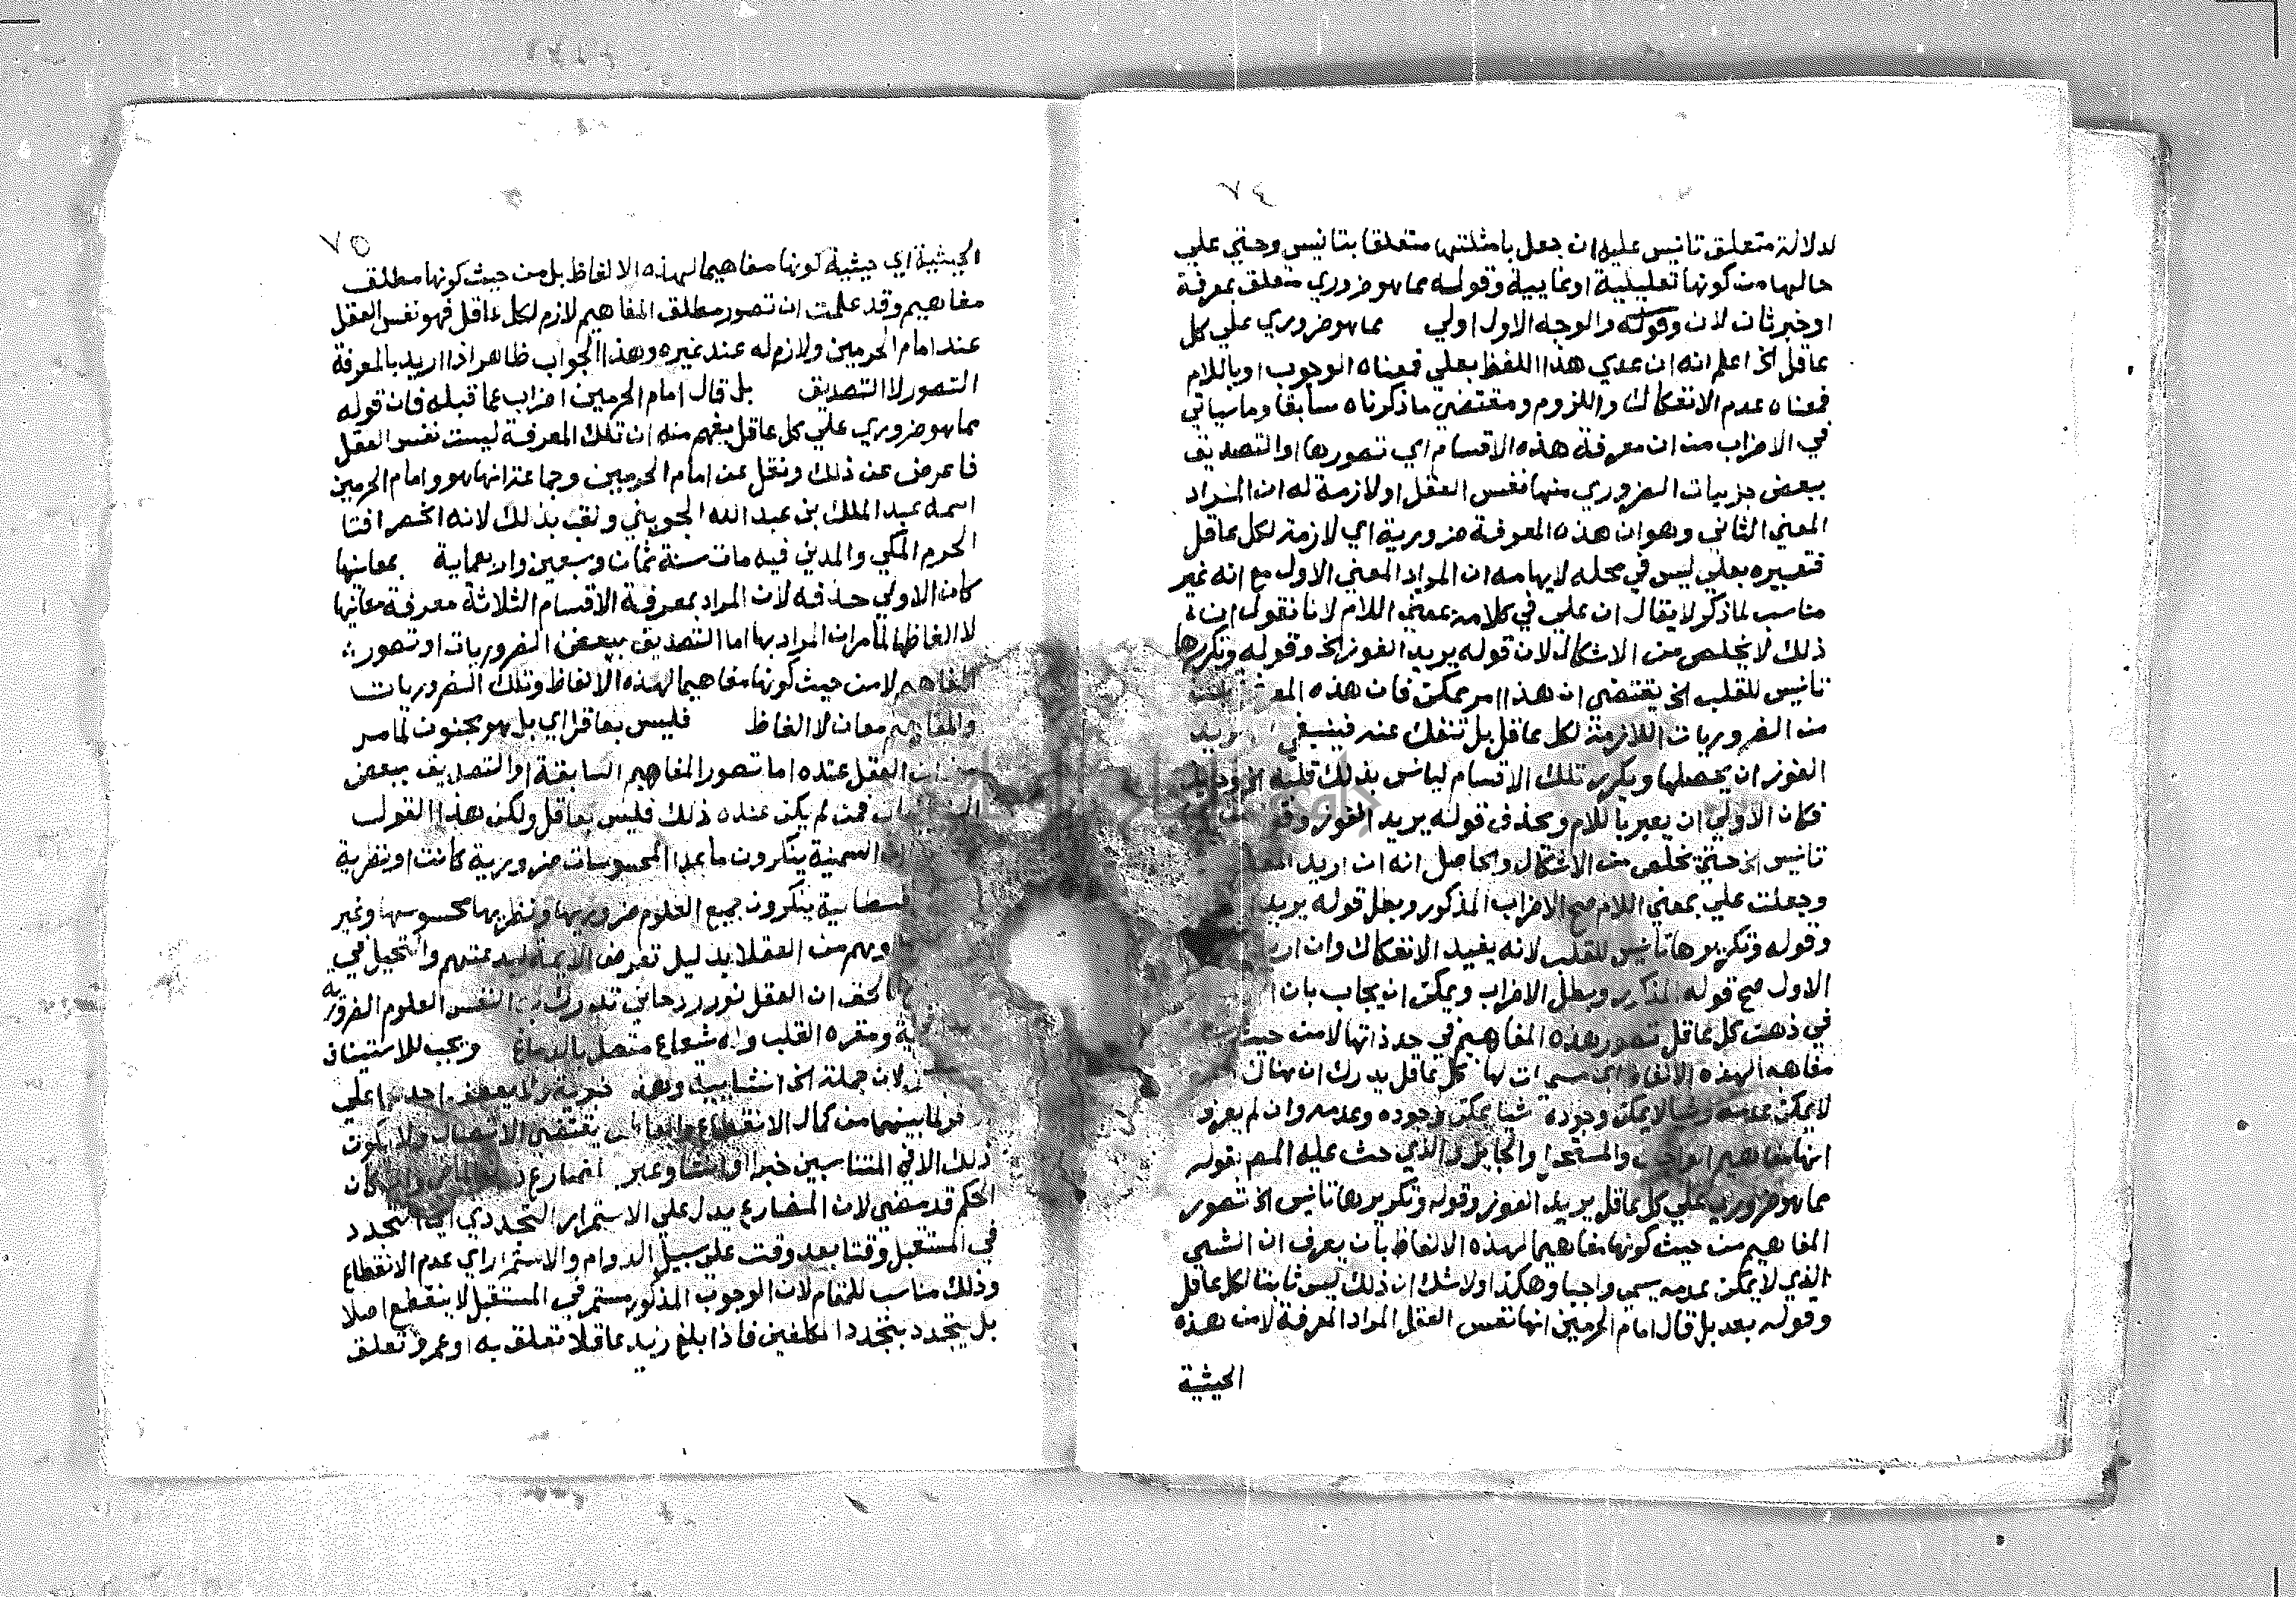 ٧٤
لدلالة متعلق تانيس عليه ان جعل بامثلتها متعلقا بتانيس وحتي علي
حالها من كونها تعليلية او غاييية وقوله مما هو ضروري متعلق بمعرفة
او خبر ثان لان وقوله والوجه الاول اولي مما هو ضروري علي كل
عاقل الخ اعلم انه ان عدي هذا اللفظ بعلي فمعناه الوجوب او باللام
فمعناه عدم الانفكاك واللزوم ومقتضي ما ذكرناه سابقا وما سياتي
في الاضراب من ان معرفة هذه الاقسام اي تصورها او التصديق
ببعض جزييات الضروري منها نفس العقل او لازمة له ان المراد
المعني الثاني وهو ان هذه المعرفة ضرورية اي لازمة لكل عاقل
فتعبيره بعلي ليس في محله لايهامه ان المراد المعني الاول مع انه غير
مناسب لما ذكر لا يقال ان علي في كلامه بمعني اللام لانا نقول ان
ذلك لا يخلص من الاشكال لان قوله يريد الفوز الخ وقوله وتكريرها
تانيس للقلب الخ يقتضي ان هذا امر ممكن فان هذه
من الضروريات اللازمة لكل عاقل بل تنفك عنه فينبغي
الفوز ان يحصلها ويكرر تلك الاقسام ليانس بذلك قلبه
فكان الاولي ان يعبر باللام ويحذف قوله يريد الفوز
تانيس الخ حتي تخلص من الاشكال والحاصل انه ان اريد
وجعلت علي بمعني اللام صح الاضراب المذكور وبطل قوله يريد
وقوله وتكريرها تانيس للقلب لانه يفيد الانفكاك وان
الاول صح قوله المذكور وبطل الاضراب ويمكن ان يجاب بان
في ذهن كل عاقل تصور هذه المفاهيم في حد ذاتها لا من حيث
مفاهيم لهذه الالفاظ لها كل عاقل يدرك ان هناك
لا يمكن عدمه وشيا لا يمكن وجوده شيا يمكن وجوده وعدمه وان لم يعرف
انها مفاهيم الواجب والمستحيل والجايز والذي حث عليه المص بقوله
مما هو ضروري علي كل عاقل يريد الفوز وقوله وتكريرها تانيس الخ تصور
المفاهيم من حيث كونها مفاهيما لهذه الالفاظ بان يعرف ان الشي
الذي لا يمكن عدمه يسمي واجبا وهكذا ولا شك ان ذلك ليس ثابتا لكل عاقل
وقوله بعد بل قال امام الحرمين انها نفس العقل المراد المعرفة لا من هذه
الحيثية
٧٥
الحيثية اي حيثية كونها مفاهيما لهذه الالفاظ بل من حيث كونها مطلق
مفاهيم وقد علمت ان تصور مطلق المفاهيم لازم لكل عاقل فهو نفس العقل
عند امام الحرمين ولازم له عند غيره وهذا الجواب ظاهر اذا اريد بالمعرفة
التصور لا التصديق بل قال امام الحرمين اضراب عما قبله فان قوله
مما هو ضروري علي كل عاقل يفهم منه ان تلك المعرفة ليست نفس العقل
فاعرض عن ذلك ونقل عن امام الحرمين وجماعة انها هو وامام الحرمين
اسمه عبد الملك بن عبد الله الجويني ولقب بذلك لانه انحصر افتا
الحرم المكي والمدين فيه مات سنة ثمان وسبعين واربعماية بمعانيها
كان الاولي حذفه لان المراد بمعرفة الاقسام الثلاثة معرفة معانيها
لا الفاظها لما مر ان المراد بها اما التصديق ببعض الضروريات او تصور
المفاهيم لا من حيث كونها مفاهيما لهذه الالفاظ وتلك الضروريات
والمفاهيم معان لا الفاظ فليس بعاقل اي بل هو مجنون لما مر
من ان العقل عنده اما تصور المفاهيم السابقة او التصديق ببعض
فمن لم يكن عنده ذلك فليس بعاقل ولكن هذا القول
السمنية ينكرون ما عدا المحسوسات ضرورية كانت او نظرية
ينكرون جميع العلوم ضروريها ونظريها محسوسها وغير
وهم من العقلا بدليل تعرض الايمة لبدعتهم والتحيل في
الحق ان العقل نور روحاني تدرك به النفس العلوم الضرورية
ومقره القلب وله شعاع متصل بالدماغ ويجب للاستيناف
لان جملة الخ انشاييية وهذه احدها علي
لما بينهما من كمال الانقطاع يقتضي الاتصال ولا يكون
ذلك الا في المتناسبين خبرا او انشا وعبر كان
الحكم قد مضي لان المضارع يدل علي الاستمرار التجددي اي التجدد
في المستقبل وقتا بعد وقت علي سبيل الدوام والاستمرار اي عدم الانقطاع
وذلك مناسب للمقام لان الوجوب المذكور مستمر في المستقبل لا ينقطع اصلا
بل يتجدد بتجدد المكلفين فاذا بلغ زيد عاقلا تعلق به او عمرو تعلق